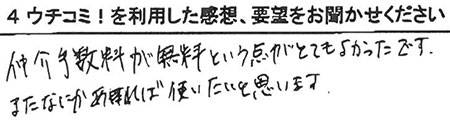 4 ウチコミ！を利用した感想、要望をお聞かせください
仲介手数料が無料という点がとてもよかったです.
またなにかあれば使いたいと思います.